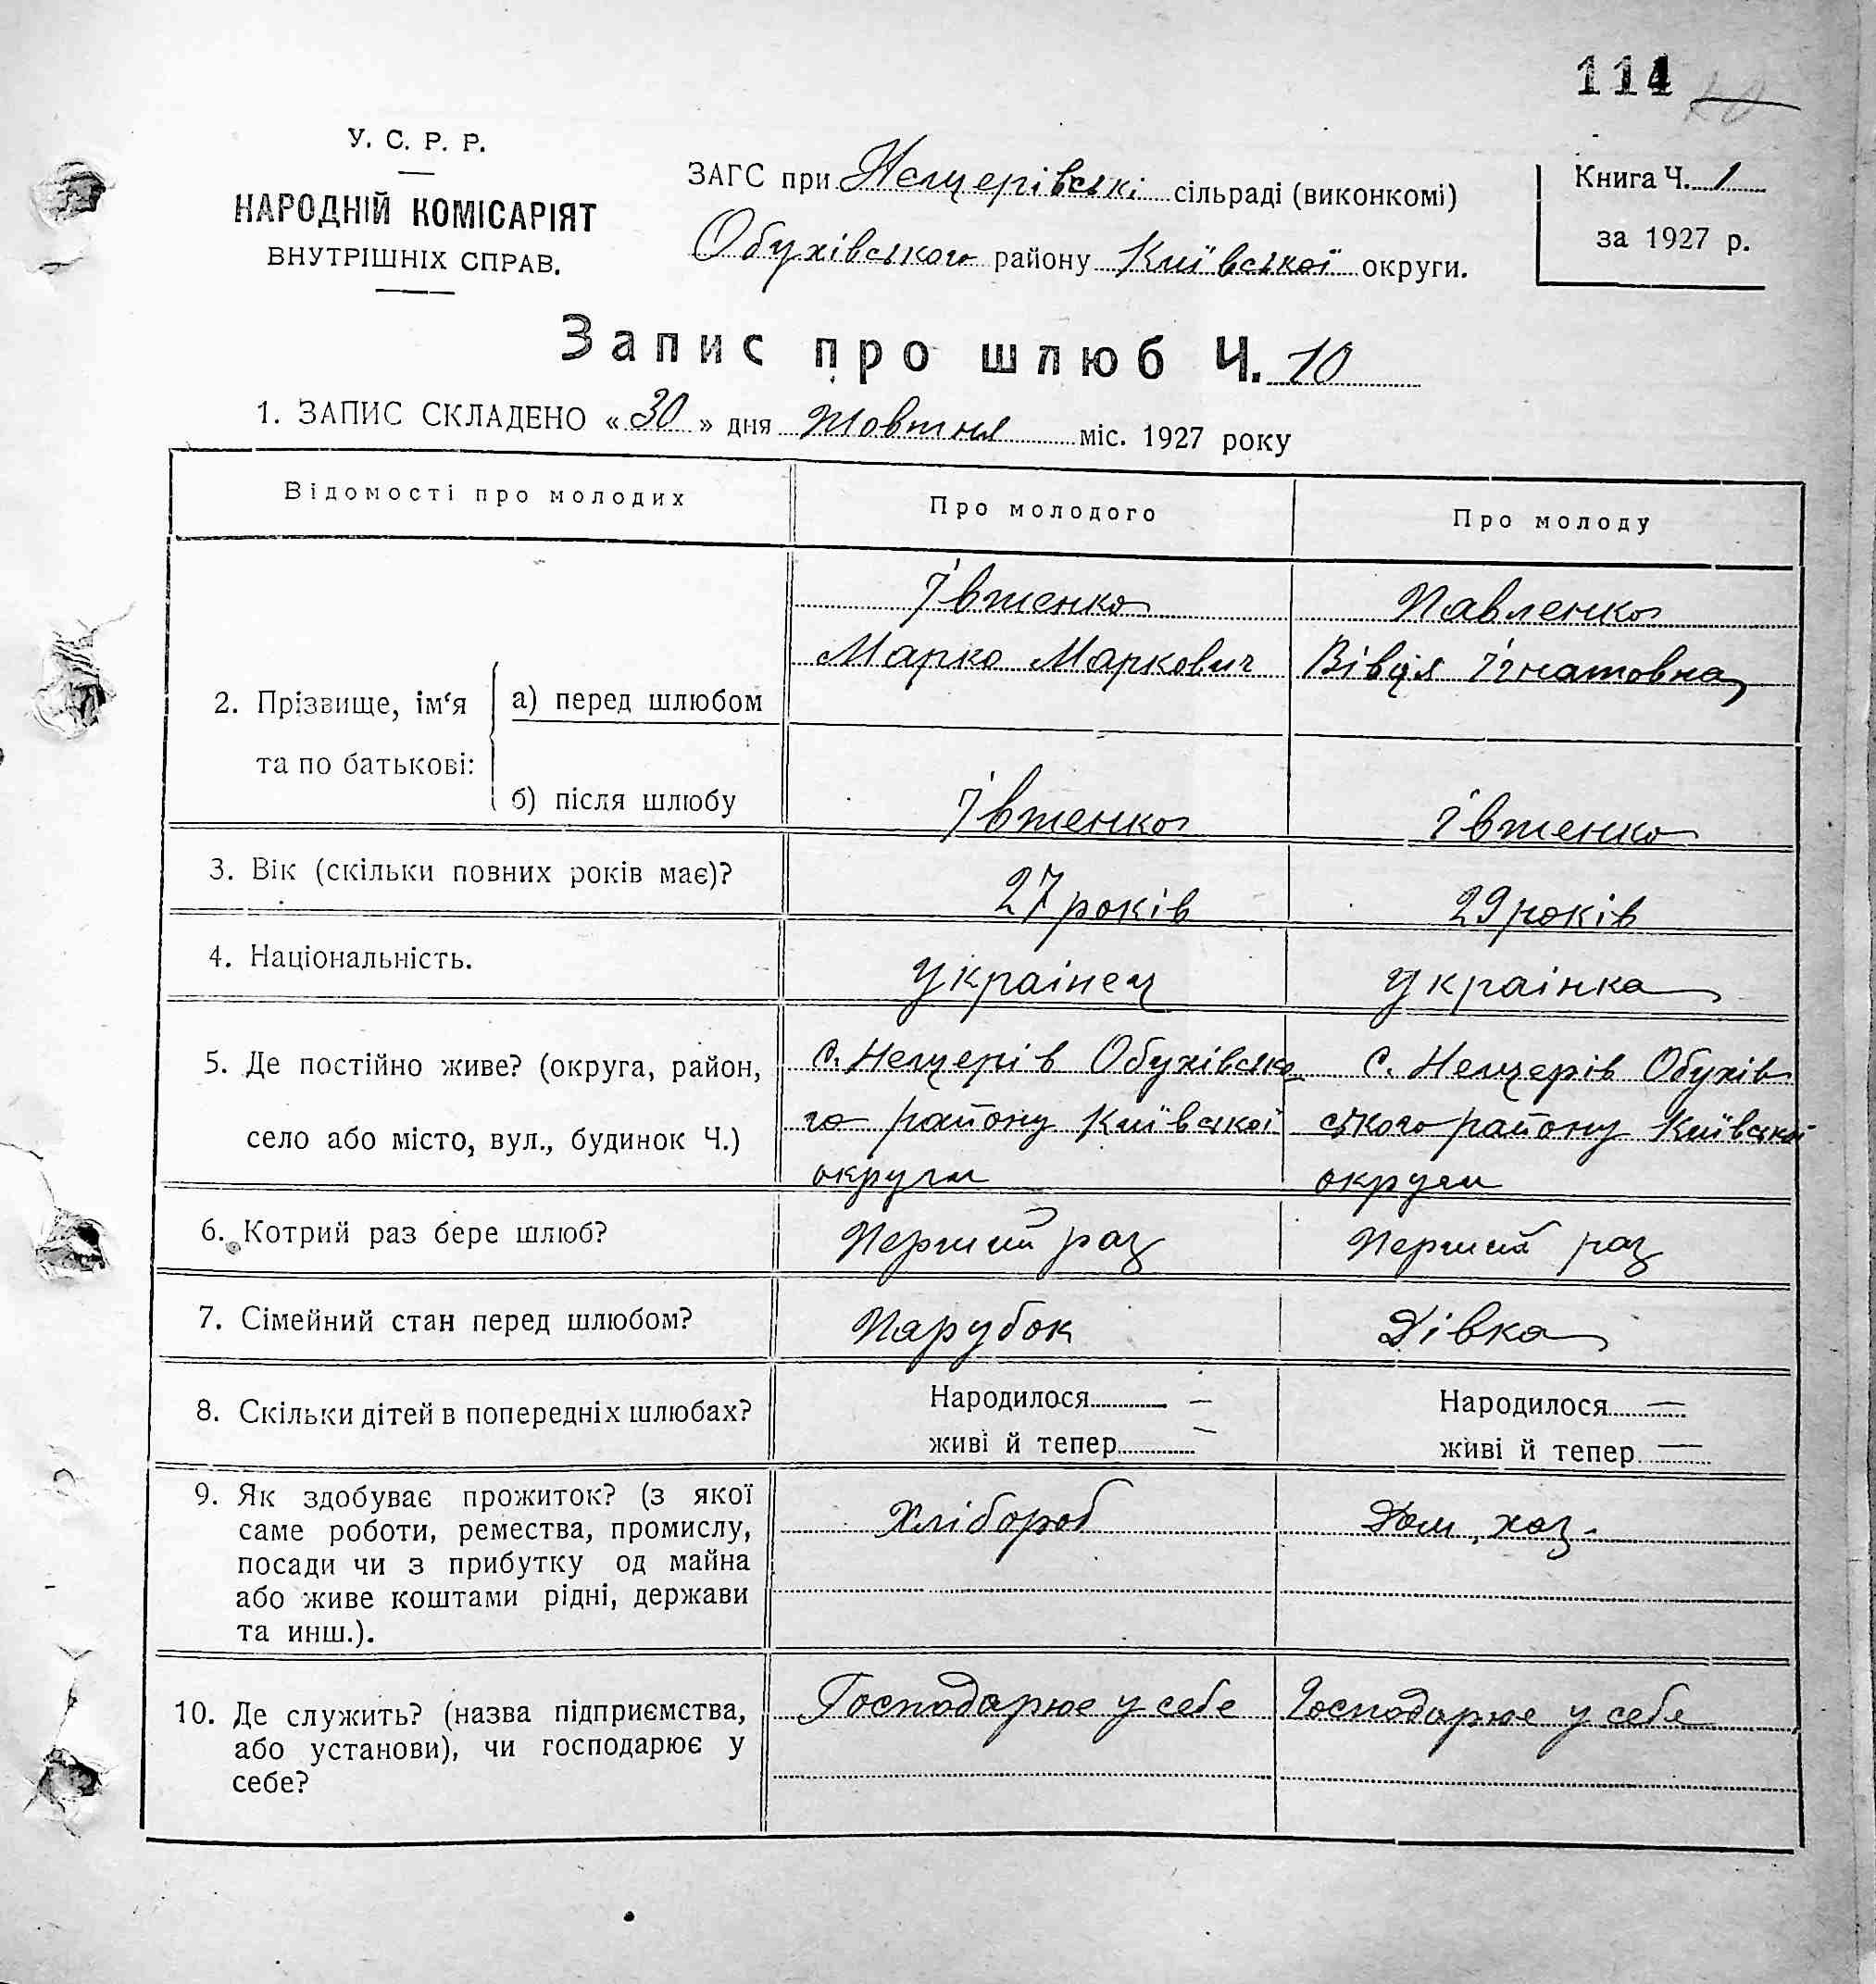 114
У. С. Р. Р.
НАРОДНІЙ КОМІСАРІЯТ
ВНУТРІШНІХ СПРАВ.
ЗАГС при Нещерівські сільраді (виконкомі)
Обухівського району Київської округи.
Книга Ч. 1
за 1927 р.
Запис про шлюб Ч. 10
1. ЗАПИС СКЛАДЕНО «30» дня Жовтня міс. 1927 року
Відомості про молодих
Про молодого
Про молоду
2. Прізвище, ім‘я
та по батькові:
а) перед шлюбом
Івженко
Марко Маркович
Павленко
Вівдя Ігнатовна
б) після шлюбу
Івженко
Івженко
3. Вік (скільки повних років має)?
27 років
29 років
4. Національність.
Українец
Українка
5. Де постійно живе? (округа, район,
село або місто, вул., будинок Ч.)
с. Нещерів Обухівсько
го району Київської
округи
с. Нещерів Обухів
ського району Київської
округи
6. Котрий раз бере шлюб?
Перший раз
Перший раз
7. Сімейний стан перед шлюбом?
Парубок
Дівка
8. Скільки дітей в попередніх шлюбах?
Народилося —
живі й тепер —
Народилося —
живі й тепер —
9. Як здобуває прожиток? (з якої
саме роботи, ремества, промислу,
посади чи з прибутку од майна
або живе коштами рідні, держави
та инш.).
Хлібороб
Дом. хоз.
10. Де служить? (назва підприємства,
або установи), чи господарює у
себе?
Господарює у себе
Господарює у себе